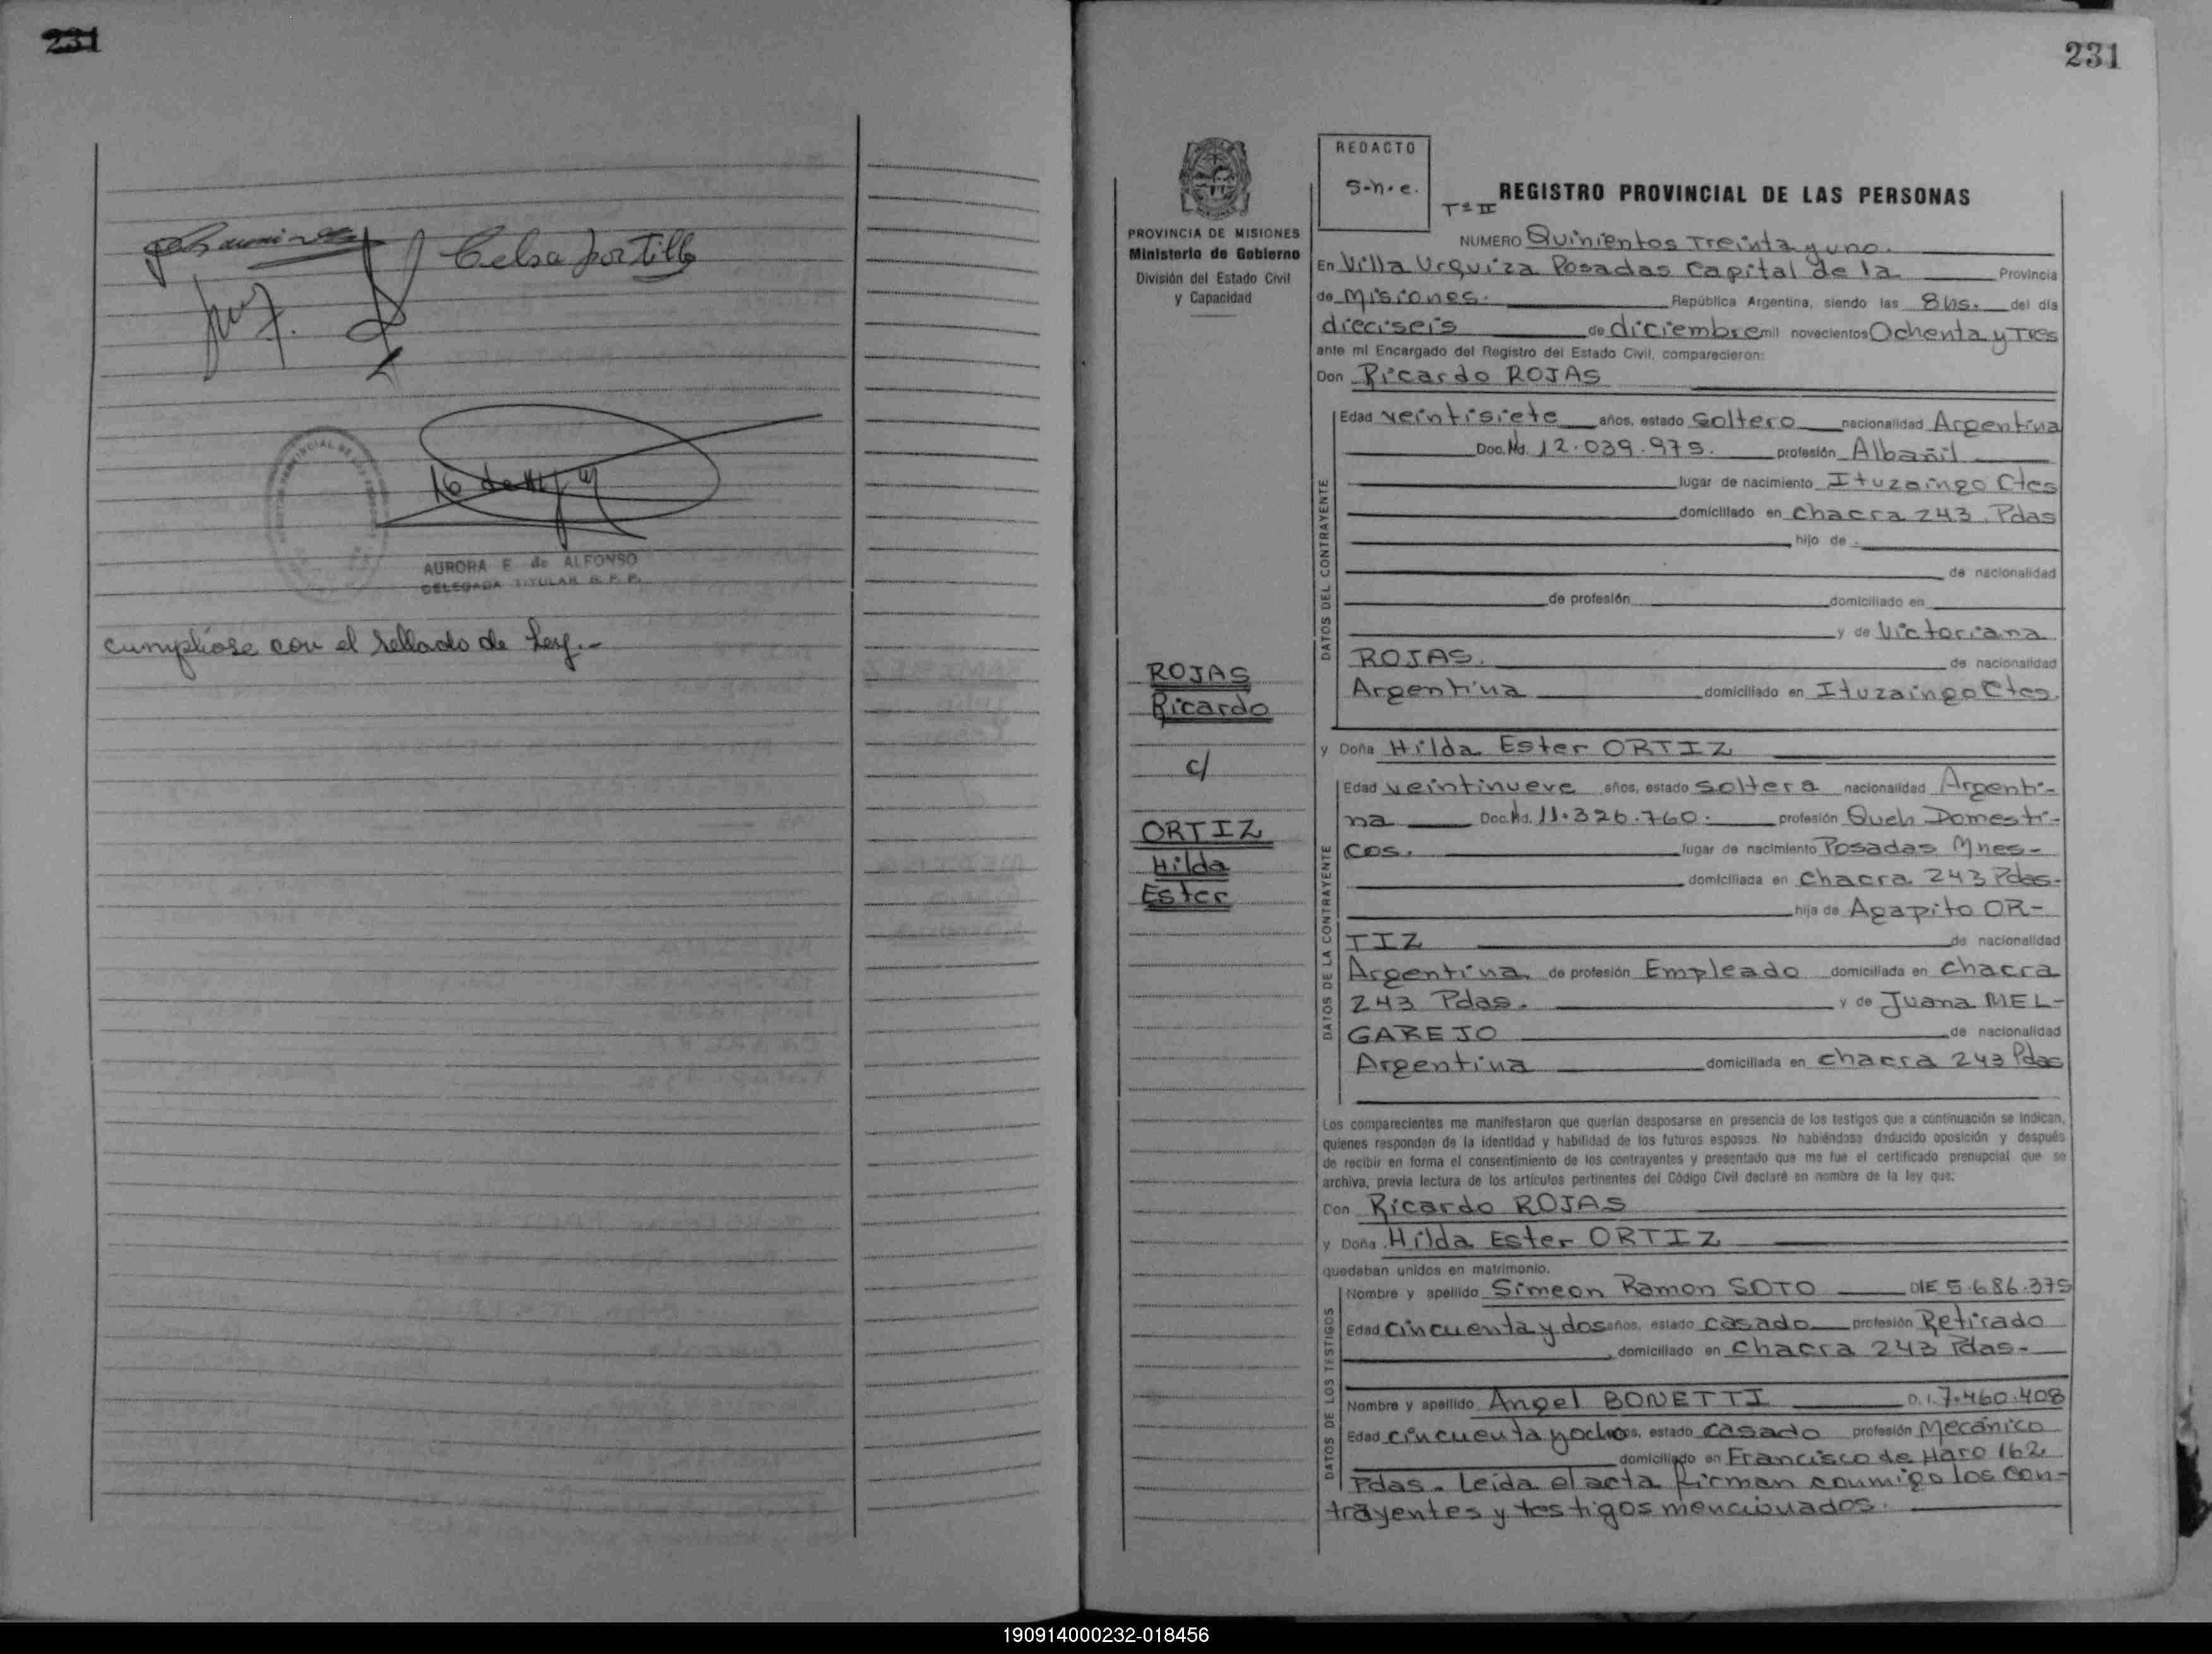 231
Celsa Portillo
AURORA F de ALFONSO
DELEGADA TITULAR R. P. P.
cumplióse con el sellado de Ley.-
231
REDACTO
S-n.e.
PROVINCIA DE MISIONES
Ministerio de Gobierno
División del Estado Civil
y Capacidad
Tº II REGISTRO PROVINCIAL DE LAS PERSONAS
NUMERO Quinientos Treinta y uno.
En Villa Urquiza Posadas Capital de la Provincia
de Misiones. República Argentina, siendo las 8 hs. del día
dieciseis de diciembre mil novecientos Ochenta y Tres
ante mí Encargado del Registro del Estado Civil, comparecieron:
Don Ricardo ROJAS
DATOS DEL CONTRAYENTE
Edad veintisiete años, estado soltero nacionalidad Argentina
Doc. Nd. 12.039.975. profesión Albañil
lugar de nacimiento Ituzaingo Ctes
domiciliado en chacra 243 Pdas
hijo de
de nacionalidad
de profesión domiciliado en
y de Victoriana
ROJAS. de nacionalidad
Argentina domiciliado en Ituzaingo Ctes.
ROJAS
Ricardo
c/
ORTIZ
Hilda
Ester
y Doña Hilda Ester ORTIZ
DATOS DE LA CONTRAYENTE
Edad veintinueve años, estado soltera nacionalidad Argenti-
na Doc. Nd. 11.326.760. profesión Queh Domesti-
cos. lugar de nacimiento Posadas Mnes-
domiciliada en chacra 243 Pdas-
hija de Agapito OR-
TIZ de nacionalidad
Argentina de profesión Empleado domiciliada en chacra
243 Pdas. y de Juana MEL-
GAREJO de nacionalidad
Argentina domiciliada en chacra 243 Pdas
Los comparecientes me manifestaron que querían desposarse en presencia de los testigos que a continuación se indican,
quienes responden de la identidad y habilidad de los futuros esposos. No habiéndose deducido oposición y después
de recibir en forma el consentimiento de los contrayentes y presentado que me fue el certificado prenupcial que se
archiva, previa lectura de los artículos pertinentes del Código Civil declaré en nombre de la ley que:
Don Ricardo ROJAS
y Doña Hilda Ester ORTIZ
quedaban unidos en matrimonio.
DATOS DE LOS TESTIGOS
Nombre y apellido Simeon Ramon SOTO DIE 5.686.375
Edad cincuenta y dos años, estado casado profesión Retirado
domiciliado en chacra 243 Pdas-
Nombre y apellido Angel BONETTI D.I. 7.460.408
Edad cincuenta y ocho años, estado casado profesión Mecánico
domiciliado en Francisco de Haro 162
Pdas. Leída el acta firman conmigo los con-
trayentes y testigos mencionados.
190914000232-018456